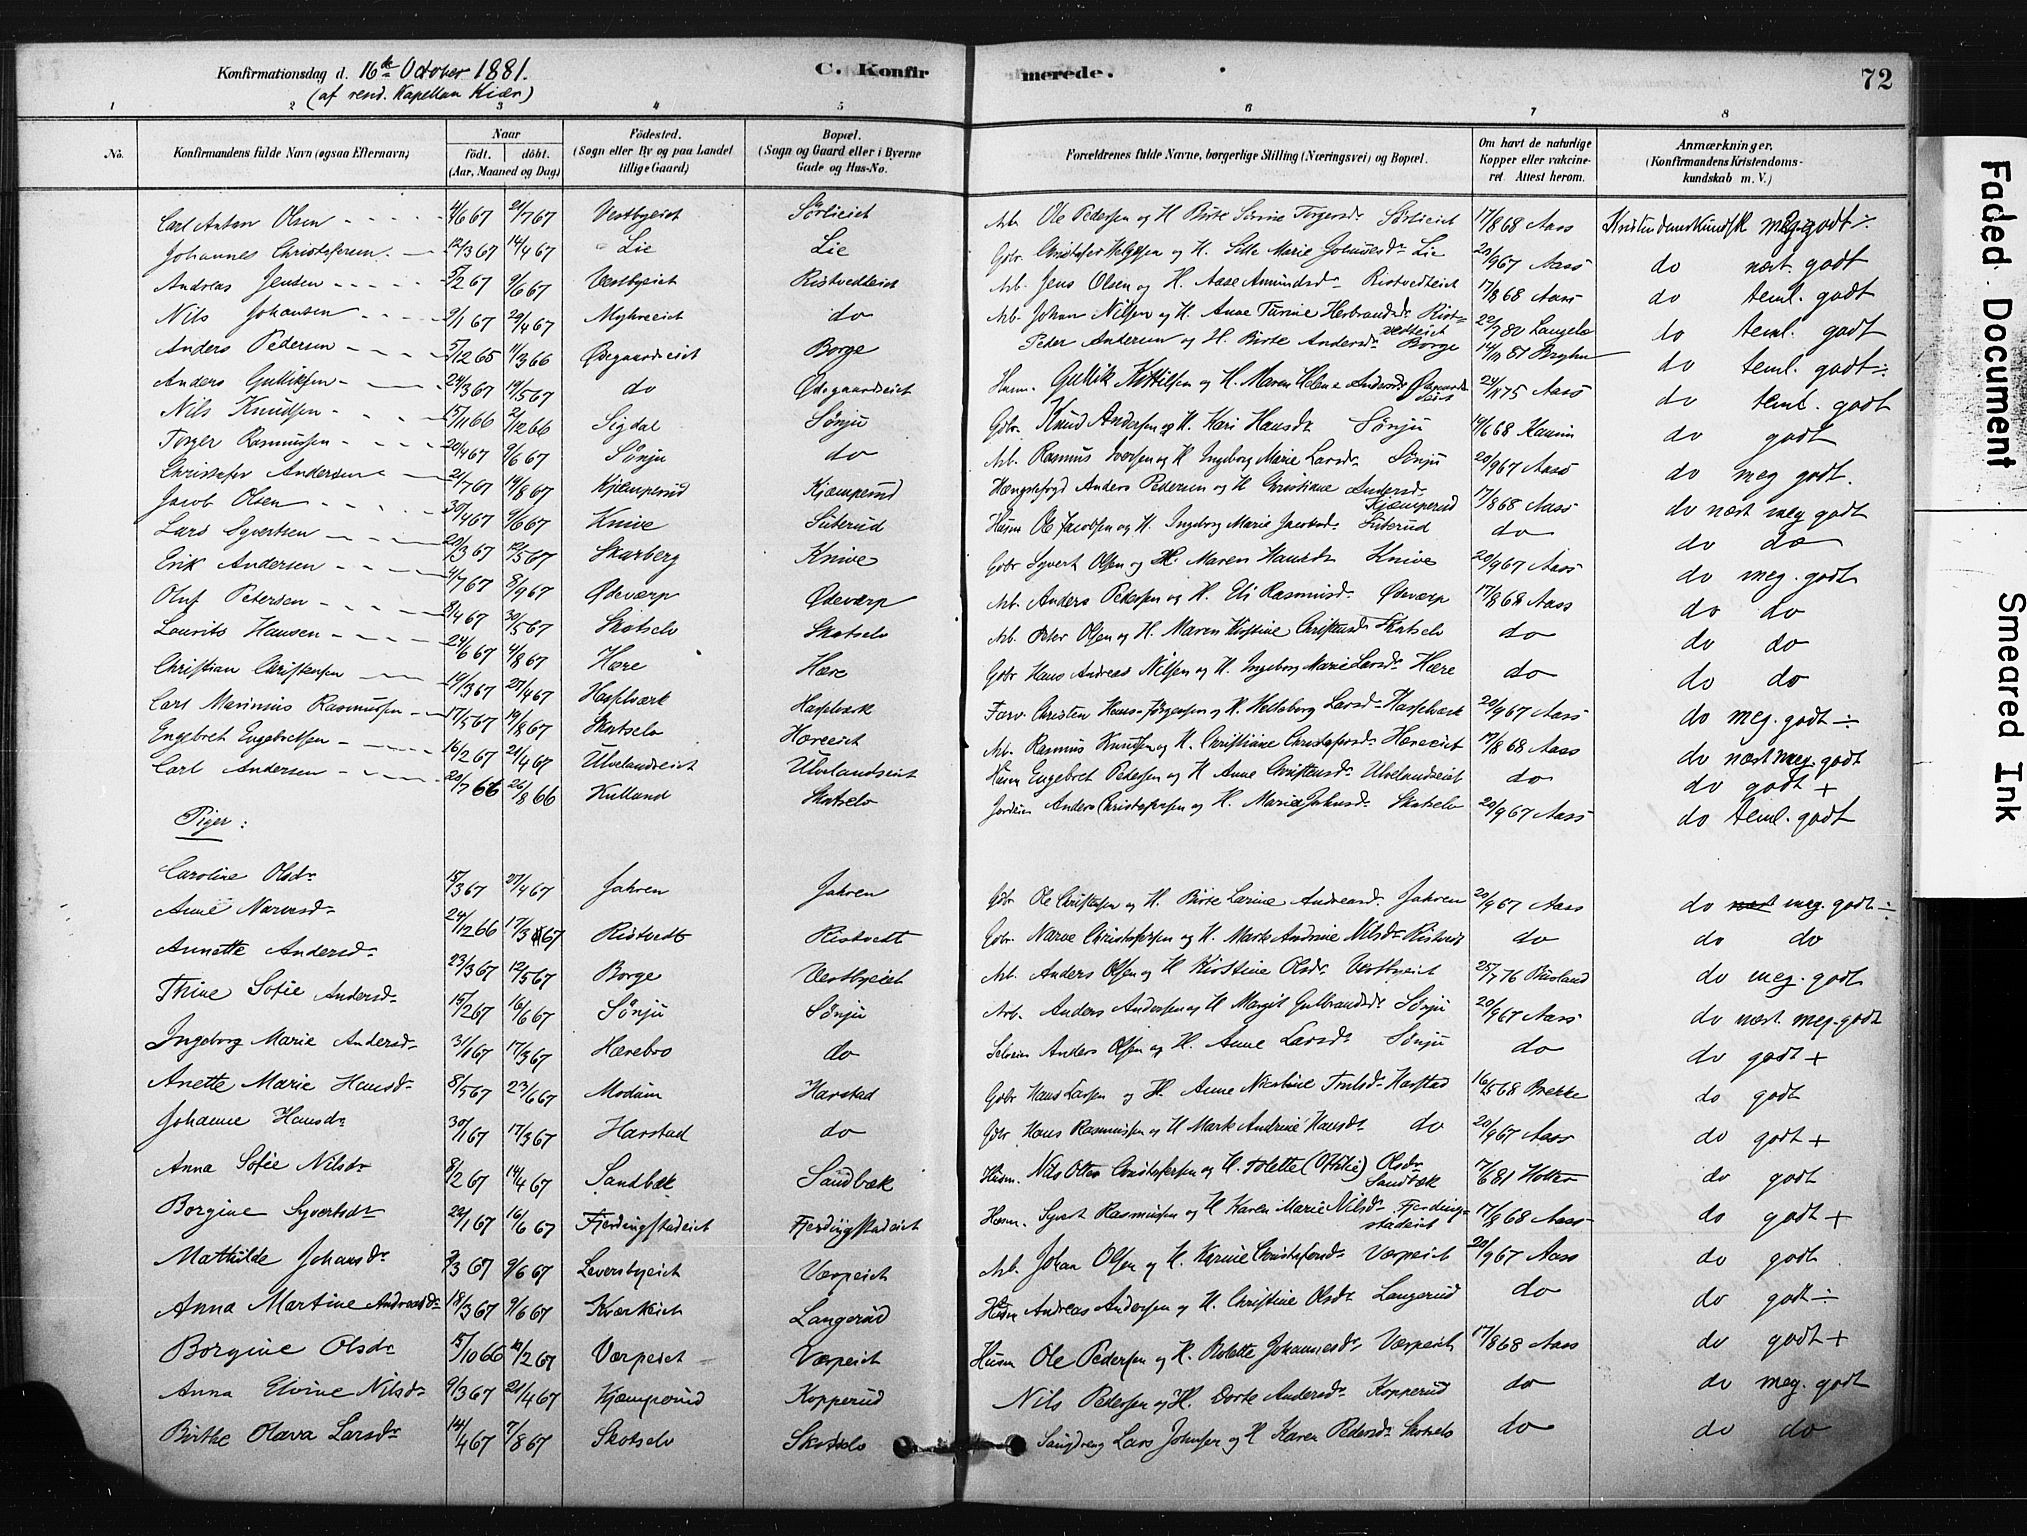 Konfirmationsdag d. 16de October 1881. C. Konfirmerede. 72
(af resid. Kapellan Kiær)
1 2 3 4 5 6 7 8
No. Konfirmandens fulde Navn (ogsaa Efternavn) Naar født. døbt. (Aar, Maaned og Dag) Fødested. (Sogn eller By og paa Landet tillige Gaard) Bopæl. (Sogn og Gaard eller i Byerne Gade og Hus-No. Forældrenes fulde Navne, borgerlige Stilling (Næringsvei) og Bopæl. Om havt de naturlige Kopper eller vakcineret. Attest herom. Anmærkninger. (Konfirmandens Kristendomskundskab m. V.)
Carl Anton Olsen 4/6 67 21/7 67 Vestbyeiet Sørlieiet Arb. Ole Pedersen og H. Birte Sørine Torgersdr Sørlieiet 17/8 68 Aass Kristendomskundsk meg. godt ÷
Johannes Christofersen 12/3 67 14/4 67 Lie Lie Gdbr. Christofer Helgesen og H. Sille Marie Johnsesdr Lie 20/9 67 Aass do næst. godt
Andreas Jensen 5/2 67 9/6 67 Vestbyeiet Ristvedteiet Arb. Jens Olsen og H. Aase Amundsdr Ristvedteiet 17/8 68 Aass do teml. godt
Nils Johansen 9/1 67 29/4 67 Myhreeiet do Arb. Johan Nilsen og H. Anne Turine Herbrandsdr Ristvedteiet 22/7 80 Langelo do teml. godt
Anders Pedersen 5/12 65 11/3 66 Ødegaardseiet Borge Peder Andersen og H. Birte Andersdr Borge 14/ 81 Bryhn do teml. godt ÷
Anders Gulliksen 24/3 67 19/5 67 do Ødegaardseiet Husm. Gullik Kittilsen og H. Maren Helene Andersdr Ødegaardseiet 24/ 75 Aass do teml. godt
Nils Knudsen 15/11 66 2/12 66 Sigdal Sønju Gdbr. Knud Andersen og H. Kari Hansdr Sønju 14/6 68 do godt
Torger Rasmussen 20/4 67 9/6 67 Sønju do Arb. Rasmus Iversen og H. Ingeborg Marie Larsdr Sønju 20/9 67 Aass do meg godt.
Christofer Andersen 21/7 67 19/8 67 Kjæmperud Kjæmperud Anders Pedersen og H Christine Andersdr Kjæmperud 17/8 68 Aass do næst meg godt
Jacob Olsen 30/4 67 9/6 67 Knive Suterud Husm Ole Jacobsen og H. Ingeborg Marie Jacobsdr Suterud do do do
Lars Syvertsen 20/3 67 12/5 67 Skarberg Knive Gdbr Syvert Olsen og H. Maren Hansdr Knive 20/9 67 Aass do meg. godt
Erik Andersen 4/7 67 8/9 67 Ødeværp Ødeværp Arb. Anders Pedersen og H. Eli Rasmusdr Ødeværp 17/8 68 Aass do do
Oluf Petersen 3/4 67 30/5 67 Skotselv Skotselv Arb. Peter Olsen og H. Maren Kirstine Christensdr Skotselv do do do
Lourits Hansen 24/6 67 4/8 67 Hære Hære Gdbr Hans Andreas Nilsen og H. Ingeborg Marie Larsdr Hære do do do
Christian Christensen 19/3 67 27/4 67 Hasselværk Hasselværk Farv. Christen Hans-Jørgensen og H. Helleborg Larsdr Hasselværk 20/9 67 Aass do meg. godt ÷
Carl Marinius Rasmussen 17/5 67 19/8 67 Skotselv Hæreeiet Arb. Rasmus Knudsen og H. Christiane Christofersdr Hæreeiet 17/8 68 Aass do næst meg. godt
Engebret Engebretsen 16/2 67 21/4 67 Ulvelandseiet Ulvelandseiet Husm Engebret Pedersen og H Anne Christensdr Ulvelandseiet do do godt +
Carl Andersen 20/7 66 26/8 66 Kulland Skotselv Anders Christofersen og H. Maria Johnsdr Skotselv 20/9 67 Aass do teml. godt
Piger:
Caroline Olsdr 15/3 67 27/4 67 Jahren Jahren Gdbr. Ole Christensen og H. Birte Larine Andreasdr. Jahren 20/9 67 Aass do næst meg. godt ÷
Anne Narvesdr 24/12 66 17/3 67 Ristvedt Ristvedt Gdbr. Narve Christofersen og H. Marte Andrine Nilsdr Ristvedt do do do
Annette Andersdr 23/3 67 12/5 67 Borge Vestbyeiet Arb. Anders Olsen og H Kirstine Olsdr Vestbyeiet 25/7 76 Busland do meg. godt
Thine Sofie Andersdr 15/2 67 16/6 67 Sønju Sønju Arb. Anders Andersen og H Margit Gulbrandsdr Sønju 20/9 67 Aass do næst. meg. godt
Ingeborg Marie Andersdr 3/1 67 17/3 67 Hærebro do Anders Olsen og H. Anne Larsdr Sønju do do godt +
Anette Marie Hansdr 8/5 67 23/6 67 Modum Harstad Gdbr Hans Larsen og H. Anne Nicoline Trulsdr Harstad 16/5 68 Brekke do godt
Johanne Hansdr 30/1 67 17/3 67 Harstad do Gdbr Hans Rasmussen og H Marte Andrine Hansdr do 20/9 67 Aass do godt +
Anna Sofie Nilsdr 8/2 67 14/4 67 Sandbæk Sandbæk Husm. Nils Otter Christofersen og H. Tolette (Ottilie) Olsdr Sandbæk 17/6 81 Holter do godt
Borgine Syvertsdr 20/1 67 16/6 67 Fjerdingstadeiet Fjerdingstadeiet Husm. Syvert Rasmussen og H Karen Marie Nilsdr Fjerdingstadeiet 17/8 68 Aass do godt +
Mathilde Johansdr 3/3 67 9/6 67 Leversbyeiet Værpeiet Arb. Johan Olsen og H. Karine Christofersdr Værpeiet 20/9 67 Aass do godt
Anna Martine Andreasdr 18/3 67 9/6 67 Kværkeiet Langerud Husm Andreas Andersen og H. Christine Olsdr Langerud do do godt ÷
Borgine Olsdr 15/10 66 10/2 67 Værpeiet Værpeiet Husm Ole Pedersen og H. Rolette Johannesdr Værpeiet 17/8 68 Aass do godt +
Anna Elvine Nilsdr 9/3 67 21/4 67 Kjæmperud Kopperud Nils Petersen og H. Dorte Andersdr Kopperud do do meg. godt
Birthe Olava Larsdr 14/4 67 7/8 67 Skotselv Skotselv Saugdreng Lars Johnsen og H Karen Pedersdr Skotselv do do do
Faded Document
Smeared Ink